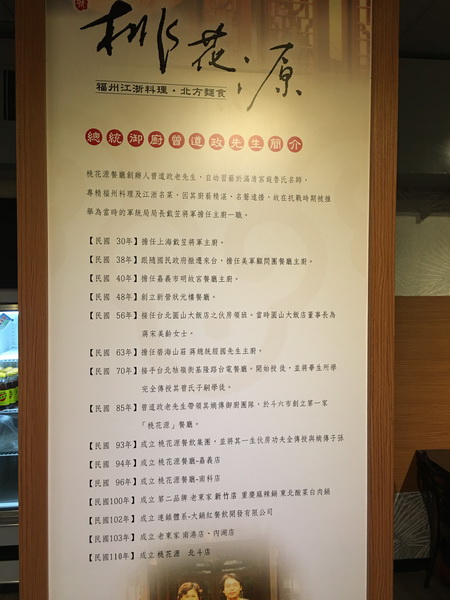 桃花源
福州江浙料理・北方麵食
總統御廚曾道政先生簡介
桃花源餐廳創辦人曾道政老先生，自幼習藝於滿清宮庭魯氏名師，
專精福州料理及江浙名菜。因其廚藝精湛、名聲遠播，故在抗戰時期被推
舉為當時的軍統局局長戴笠將軍擔任主廚一職。
【民國 30年】擔任上海戴笠將軍主廚。
【民國 38年】跟隨國民政府撤遷來台，擔任美軍顧問團餐廳主廚。
【民國 40年】擔任嘉義市明故宮餐廳主廚。
【民國 48年】創立新營狀元樓餐廳。
【民國 56年】接任台北圓山大飯店之伙房領班。當時圓山大飯店董事長為
蔣宋美齡女士。
【民國 63年】擔任碧海山莊 蔣總統經國先生主廚。
【民國 70年】接手台北牯嶺街基隆路台電餐廳。開始授徒，並將畢生所學
完全傳授其曾氏子嗣學徒。
【民國 85年】曾道政老先生帶領其嫡傳御廚團隊，於斗六市創立第一家
「桃花源」餐廳。
【民國 93年】成立 桃花源餐飲集團，並將其一生伙房功夫全傳授與嫡傳子孫
【民國 94年】成立 桃花源餐廳-嘉義店
【民國 96年】成立 桃花源餐廳-南科店
【民國100年】成立 第二品牌 老東家 新竹店 重慶麻辣鍋 東北酸菜白肉鍋
【民國102年】成立 連鎖體系-大鍋紅餐飲開發有限公司
【民國103年】成立 老東家 南港店、內湖店
【民國110年】成立 桃花源 北斗店